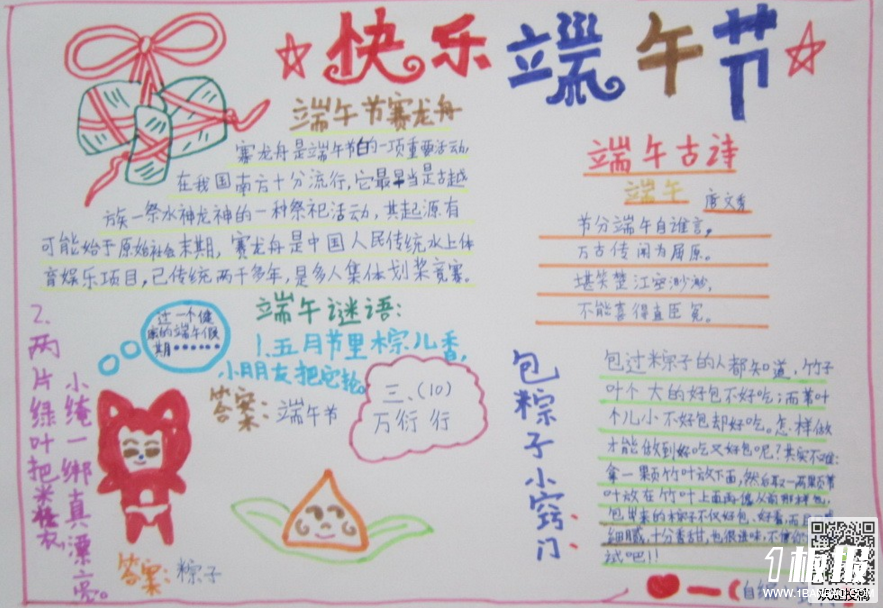 快乐端午节
端午节赛龙舟
赛龙舟是端午节的一项重要活动
在我国南方十分流行,它最早当是古越
族一祭水神龙神的一种祭祀活动,其起源有
可能始于原始社会末期,赛龙舟是中国人民传统水上体
育娱乐项目,已传统两千多年,是多人集体划桨竞赛。
端午古诗
端午
唐文秀
节分端午自谁言,
万古传闻为屈原。
堪笑楚江空渺渺,
不能喜得直臣冤。
过一个健
康的端午假
期……
端午谜语:
1.五月节里棕儿香,
小朋友把它轮。
答案:端午节
三、(10)
万衍行
2.两片绿叶把米
衣,
小绳一绑真漂亮。
答案:粽子
包粽子小窍门:
包过粽子的人都知道,竹子
叶个大的好包不好吃;而苇叶
个儿小不好包却好吃。怎样做
才能做到好吃又好包呢?其实不难:
拿一颗竹叶放下面,然后取一两
叶放在竹叶上面再像从前那样包,
包出来的粽子不仅好包、好看,而
细腻,十分香甜,也很美味,不
试吧!!
1板报
WWW.1BANBAO.COM
欢迎投稿